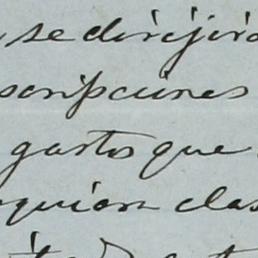 se dirijir
scripciones
gastos que
quion clas